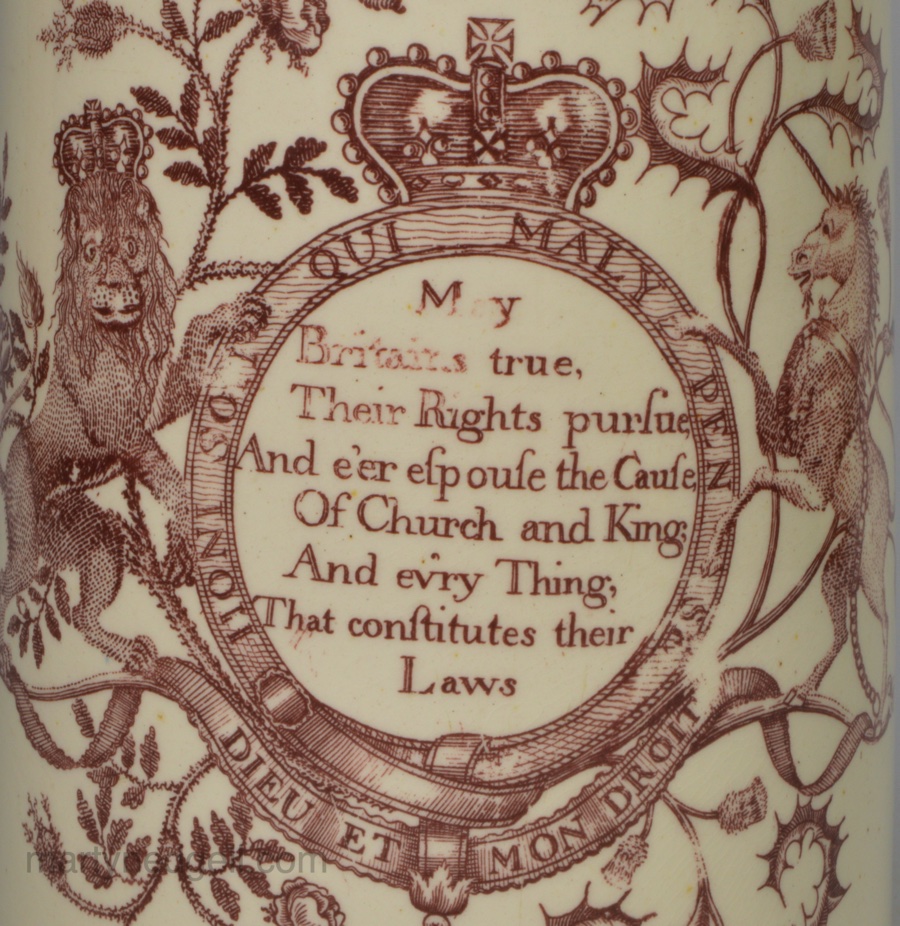 HONI SOIT QUI MALY PENSE
May
Britains true,
Their Rights purſue
And e'er eſpouſe the Cauſe
Of Church and King;
And ev'ry Thing;
That conſtitutes their
Laws
DIEU ET MON DROIT